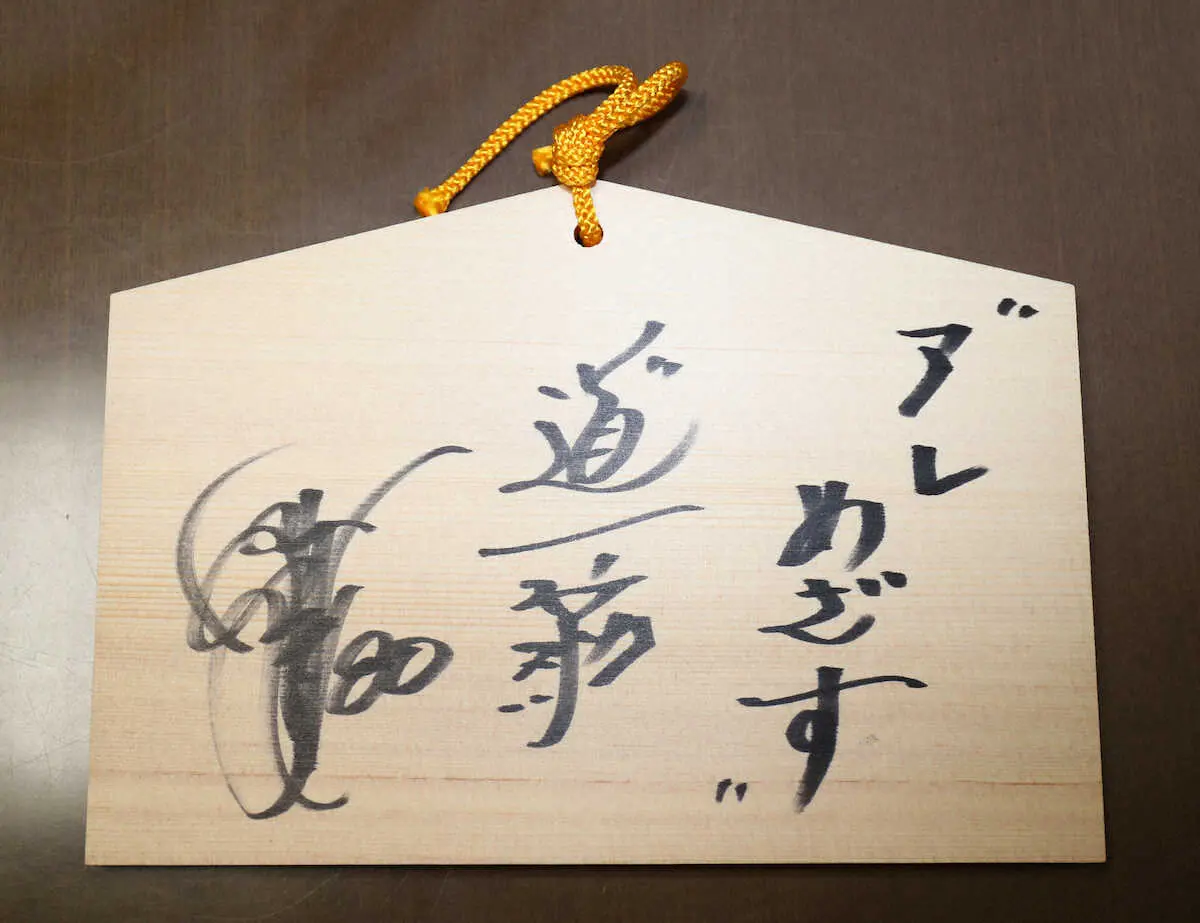 "アレ
めざす"
道一筋
80